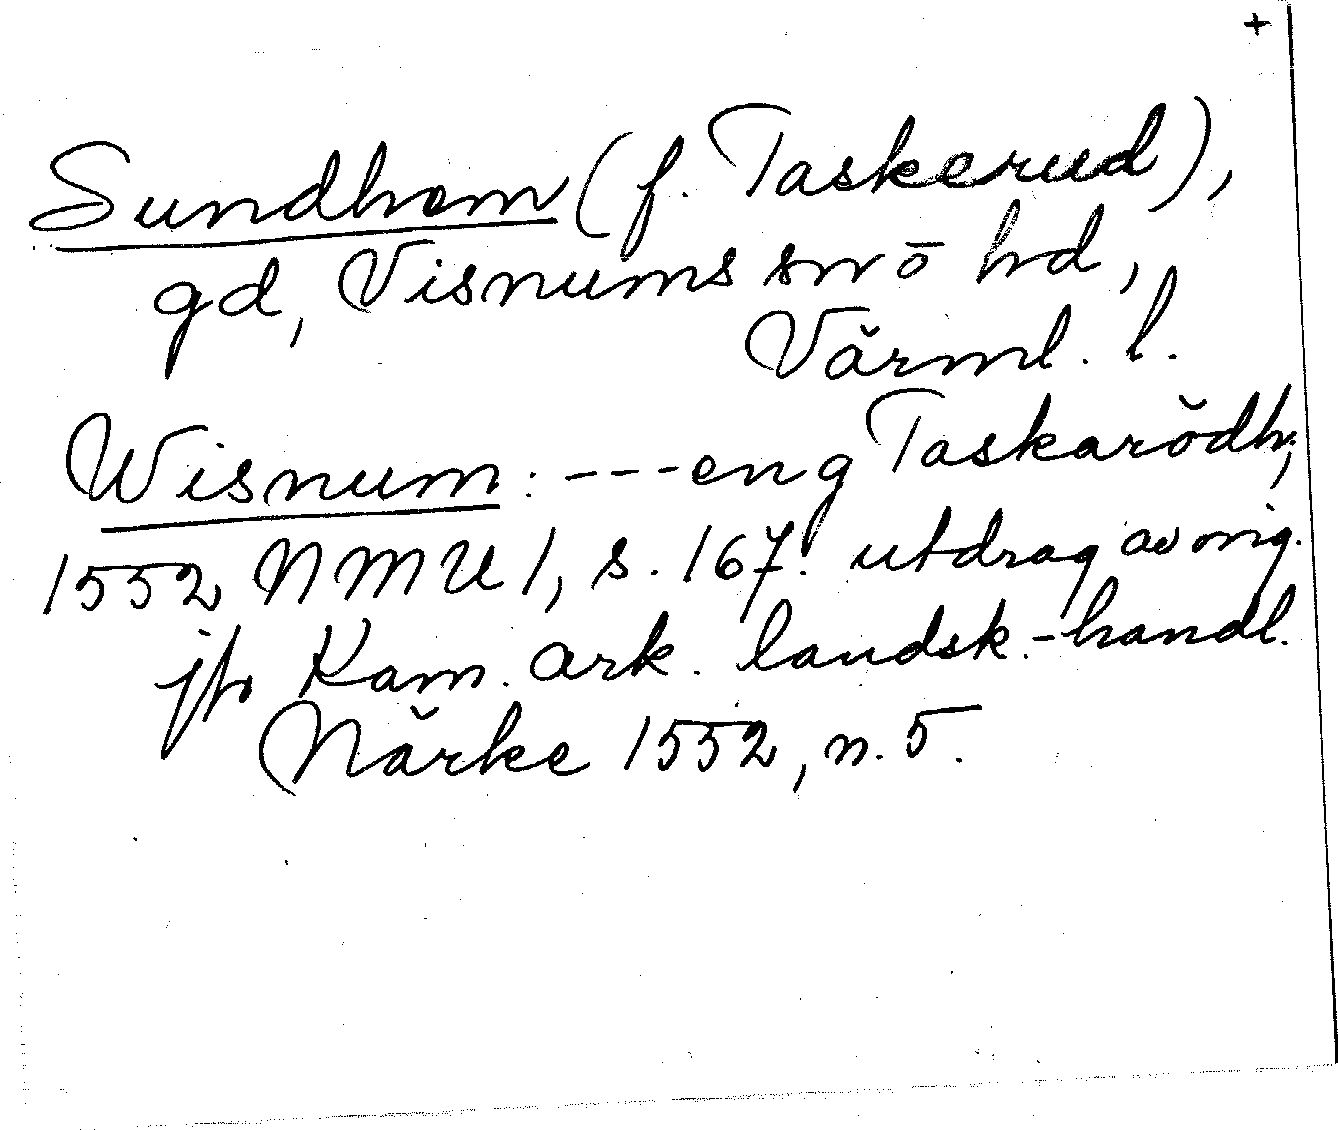 +
Sundhem (f. Taskerud),
gd, Visnums snö hd,
Värml. l.
Wisnum: ---eng Taskarödh;
1552 NMU 1, s. 167. utdrag av orig.
jfr Kam. ark. landsk.-handl.
Närke 1552, n. 5.